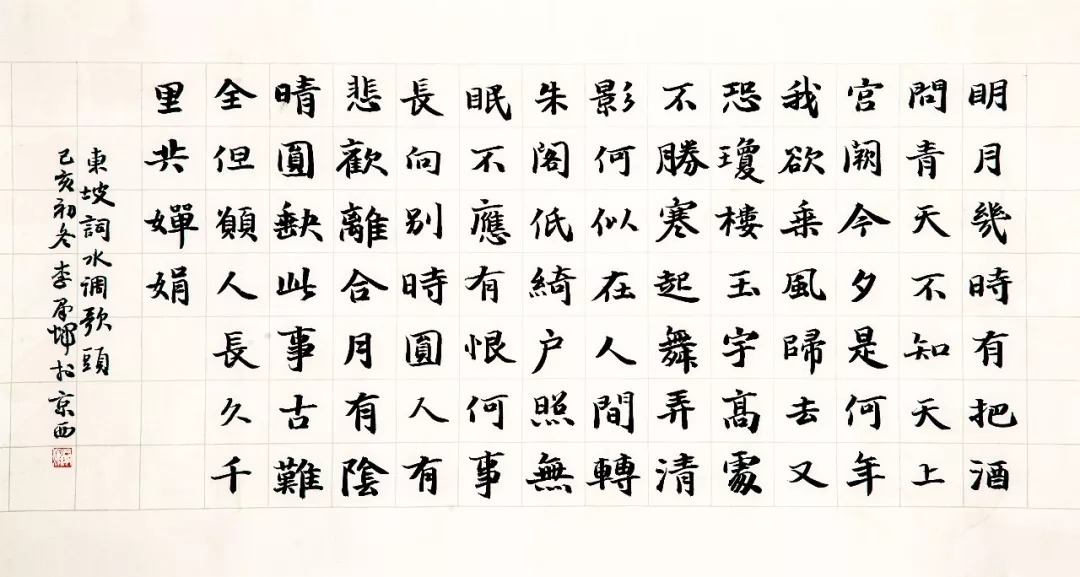 明月幾時有把酒
問青天不知天上
宮闕今夕是何年
我欲乘風歸去又
恐瓊樓玉宇高處
不勝寒起舞弄清
影何似在人間轉
朱閣低綺户照無
眠不應有恨何事
長向别時圓人有
悲歡離合月有陰
晴圓缺此事古難
全但願人長久千
里共嬋娟
東坡詞水调歌頭
己亥初冬李 於京西